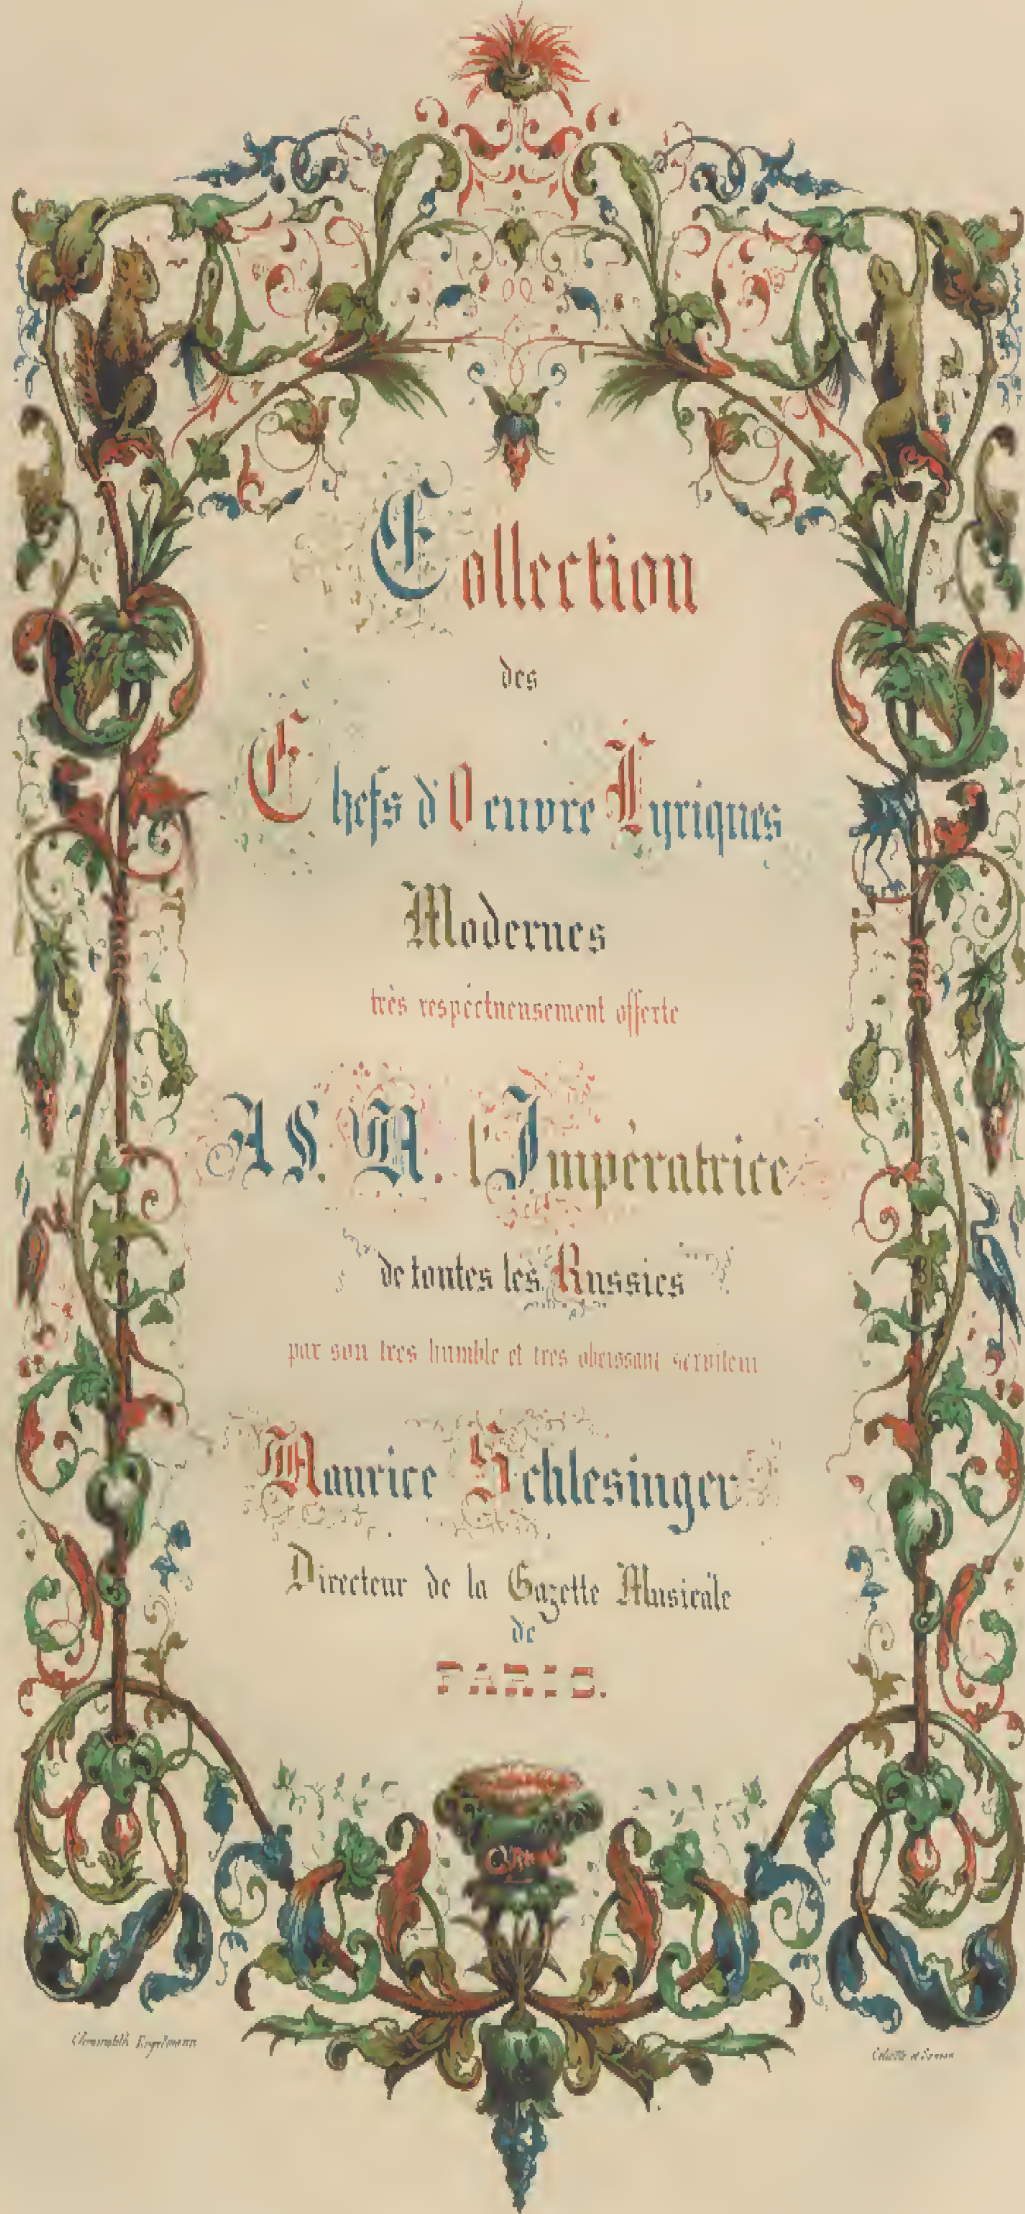 Collection
des
Chefs d'Oeuvre Lyriques
Modernes
très respéctueusement offerte
A S. M. l'Impératrice
de toutes les Russies
par son tres humble et tres obeissant serviteur
Maurice Schlesinger
Directeur de la Gazette Musicale
de
PARIS.
Engelmann